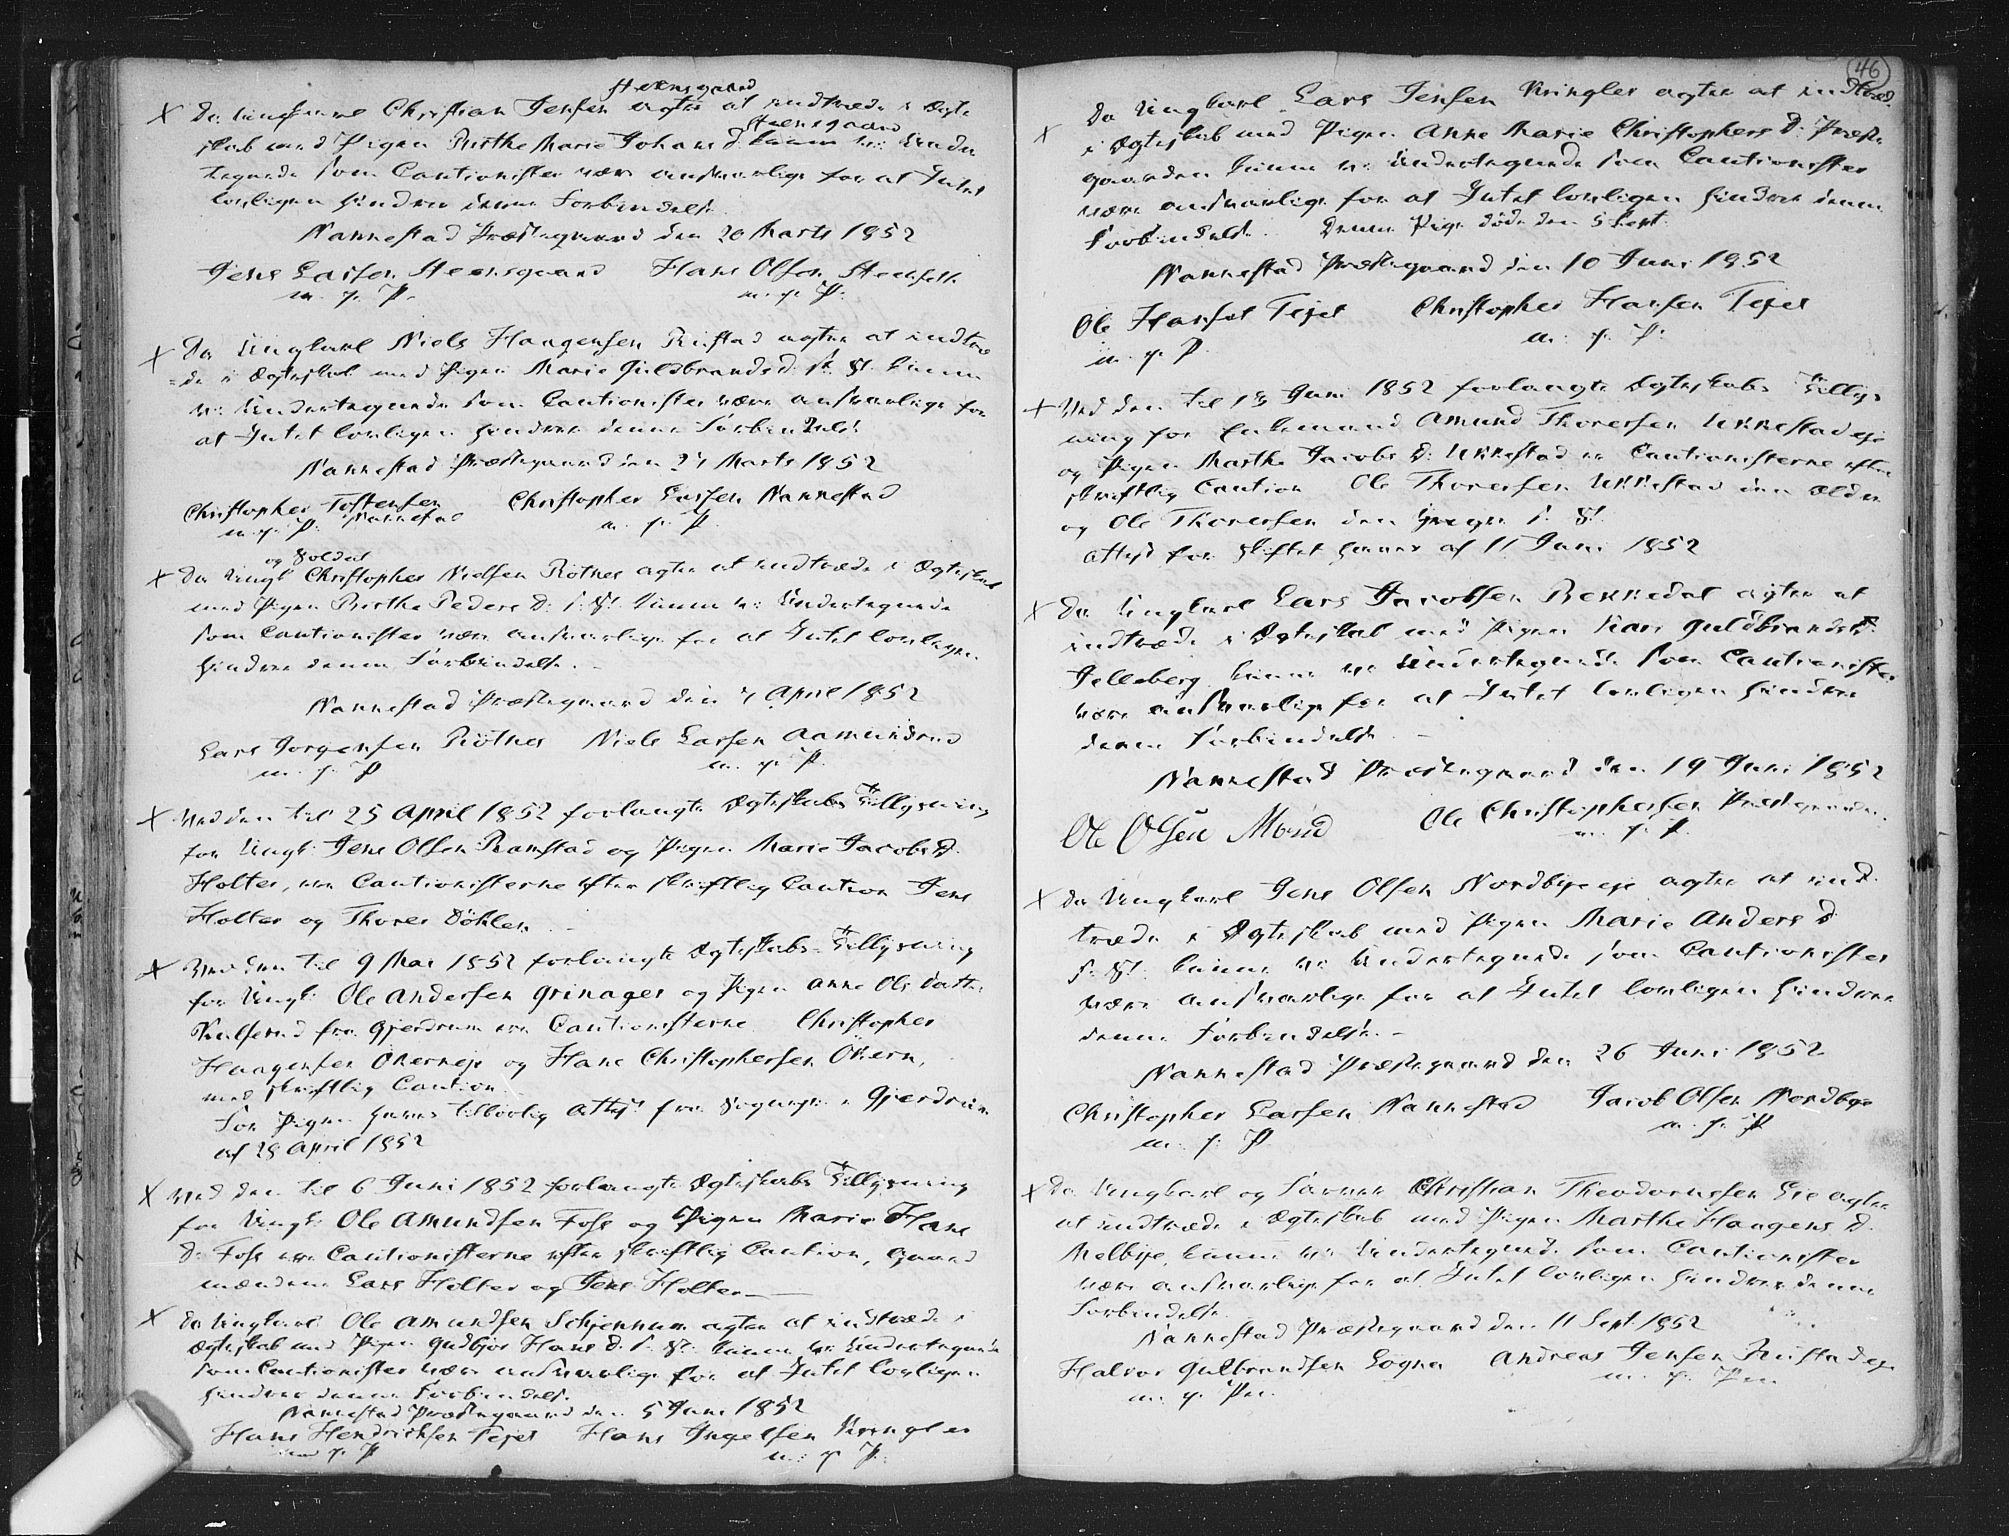 Steensgaard
Da Ungkarl Christian Jensen agter at indtræde i Ægte
Steensgaard
skab med Pigen Birthe Marie Johans D. kunne vi Under
tegnede som Cautionister være ansvarlige for at Intet
lovligen hindrer denne Forbindelse
Nannestad Præstegaard den 20 Marts 1852
Jens Larsen Steensgaard Hans Olsen
m. p. P. m. p. P.
Da Ungkarl Niels Haagensen Rustad agter at indtræ
=de i Ægteskab med Pigen Marie Guldbrands D. s. St. kunne
vi Undertegnede som Cautionister være ansvarlige for
at Intet lovligen hindrer denne Forbindelse
Nannestad Præstegaard den 27 Marts 1852
Christopher Tostensen Christopher Larsen Nannestad
m. p. P. Nannestad m. p. P.
og Soldat
Da Ungk Christopher Nielsen Rotnes agter at indtræde i Ægteskab
med Pigen Birthe Peders D. s. St. kunne vi Undertegnede
som Cautionister være ansvarlige for at Intet lovligen
hindrer denne Forbindelse.
Nannestad Præstegaard den 7 April 1852
Lars Jorgensen Rötnes Niels Larsen Aamundrud
m. p. P m. p. P.
Ved den til 25 April 1852 forlangte Ægteskabs Tillysning
for Ungk. Jens Olsen Ramstad og Pigen Marie Jacobs D.
Holter, ere Cautionisterne efter skriftlig Caution Jens
Holter og Thores Döhlen.
Ved den til 9 Mai 1852 forlangte Ægteskabs-Tillysning
for Ungk: Ole Andersen Grinager og Pigen Anne Ols Datter
Kulserud fra Gjerdrum ere Cautionisterne Christopher
Haagensen Økerneje og Hans Christophersen Økern,
med skriftlig Caution
For Pigen haves tillovlig Attest fra Sognepr. i Gjerdrum
af 28 April 1852
Ved den til 6 Juni 1852 forlangte Ægteskabs Tillysning
for Ungk: Ole Amundsen Foss og Pigen Marie Hans
D. Foss ere Cautionisterne efter skriftlig Caution, Gaard
mændene Lars Holter og Jens Holter
Da Ungkarl Ole Amundsen Schjennum agter at indtræde i
Ægteskab med Pigen Gudbjør Hans D. s. St. kunne vi Undertegnede
som Cautionister være ansvarlige for at Intet lovligen
hindrer denne Forbindelse.
Nannestad Præstegaard den 5 Juni 1852
Hans Hendrichsen Tejet Hans Ingelsen Kringler
m. p. P m. p. P.
46
Da Ungkarl Lars Jensen Kringler agter at indtræd
i Ægteskab med Pigen Anne Marie Christophers D. Præste
gaarden kunne vi Undertegnede som Cautionister
være ansvarlige for at Intet lovligen hindrer denne
Forbindelse. Denne Pige døde den 5 Sept.
Nannestad Præstegaard den 10 Juni 1852
Ole Hansen Tejet Christopher Hansen Tejet
m. p. P. m. p. P.
Ved den til 13 Juni 1852 forlangte Ægteskabs Tillys-
ning for Enkemand Amund Thoresen Ukkestadeje
og Pigen Marthe Jacobs D. Ukkestad er Cautionisterne efter
skriftlig Caution Ole Thoresen Ukkestad den Ældre
og Ole Thoresen den Yngre s. St.
Attest for Skiftet haves af 11 Juni 1852
Da Ungkarl Lars Jacobsen Bekkedal agter at
indtræde i Ægteskab med Pigen Kari Guldbrands D.
Jelleberg kunne vi Undertegnede som Cautionister
være ansvarlige for at Intet lovligen hindrer
denne Forbindelse.
Nannestad Præstegaard den 19 Juni 1852
Ole Olsen Ole Christophersen Præstegaarden
m. p. P.
Da Ungkarl Jens Olsen Nordbyeeje agter at ind
træde i Ægteskab med Pigen Marie Anders D
s. St. kunne vi Undertegnede som Cautionister
være ansvarlige for at Intet lovligen hindrer
denne Forbindelse.
Nannestad Præstegaard den 26 Juni 1852
Christopher Larsen Nannestad Jacob Olsen Nordbye
m. p. P m. p. P
Da Ungkarl og Farver Christian Theodorussen Eie agter
at indtræde i Ægteskab med Pigen Marthe Haagens D.
Melbye, kunne vi Undertegnede som Cautionister
være ansvarlige for at Intet lovligen hindrer denne
Forbindelse
Nannestad Præstegaard den 11 Sept 1852
Halvor Gulbrandsen Logna Andreas Jensen Rustadeje
m. p. Pen m. p. Pen